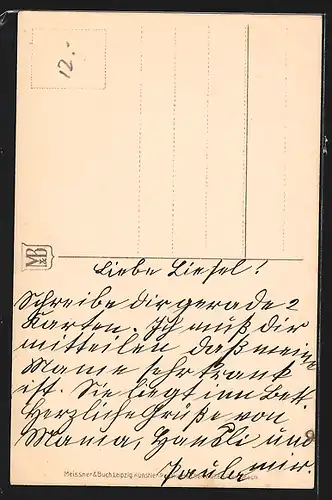 12.-
M&B
Liebe Liesel!
Schreibe dir gerade 2
Karten. Ich muß dir
mitteilen daß meine
Mame sehr krank
ist. Sie liegt im Bet.
Herzliche Grüße von
Mama, Hansli und
mir.
Paula
Meissner & Buch Leipzig Künstler-